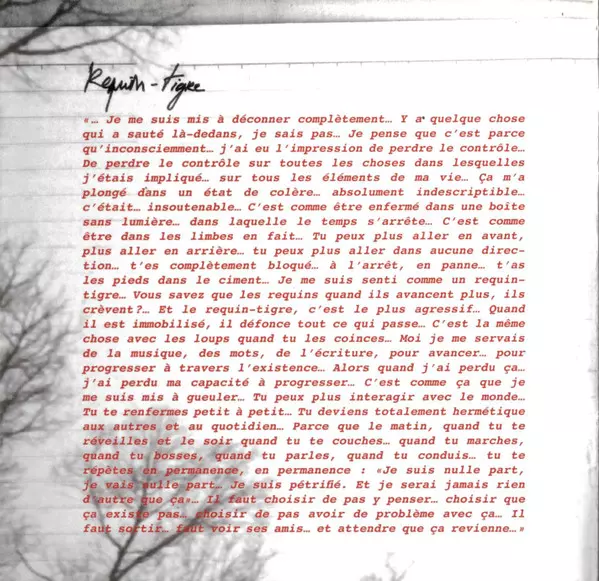 Requin-tigre
«… Je me suis mis à déconner complètement… Y a quelque chose
qui a sauté là-dedans, je sais pas… Je pense que c'est parce
qu'inconsciemment… j'ai eu l'impression de perdre le contrôle…
De perdre le contrôle sur toutes les choses dans lesquelles
j'étais impliqué… sur tous les éléments de ma vie… Ça m'a
plongé dans un état de colère… absolument indescriptible…
c'était… insoutenable… C'est comme être enfermé dans une boîte
sans lumière… dans laquelle le temps s'arrête… C'est comme
être dans les limbes en fait… Tu peux plus aller en avant,
plus aller en arrière… tu peux plus aller dans aucune direc-
tion… t'es complètement bloqué… à l'arrêt, en panne… t'as
les pieds dans le ciment… Je me suis senti comme un requin-
tigre… Vous savez que les requins quand ils avancent plus, ils
crèvent?… Et le requin-tigre, c'est le plus agressif… Quand
il est immobilisé, il défonce tout ce qui passe… C'est la même
chose avec les loups quand tu les coinces… Moi je me servais
de la musique, des mots, de l'écriture, pour avancer… pour
progresser à travers l'existence… Alors quand j'ai perdu ça…
j'ai perdu ma capacité à progresser… C'est comme ça que je
me suis mis à gueuler… Tu peux plus interagir avec le monde…
Tu te renfermes petit à petit… Tu deviens totalement hermétique
aux autres et au quotidien… Parce que le matin, quand tu te
réveilles et le soir quand tu te couches… quand tu marches,
quand tu bosses, quand tu parles, quand tu conduis… tu te
répètes en permanence, en permanence : «Je suis nulle part,
je vais nulle part… Je suis pétrifié. Et je serai jamais rien
d'autre que ça»… Il faut choisir de pas y penser… choisir que
ça existe pas… choisir de pas avoir de problème avec ça… Il
faut sortir… faut voir ses amis… et attendre que ça revienne…»